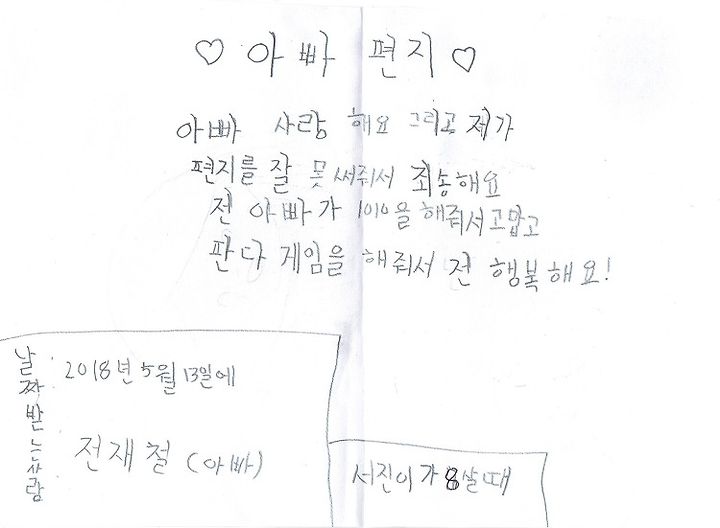 ♡ 아빠 편지 ♡
아빠 사랑해요 그리고 제가
편지를 잘 못 써줘서 죄송해요
전 아빠가 1010을 해줘서 고맙고
판다 게임을 해줘서 전 행복해요!
날짜 받는사람
2018년 5월 13일에
전재철 (아빠)
서진이가 8살때